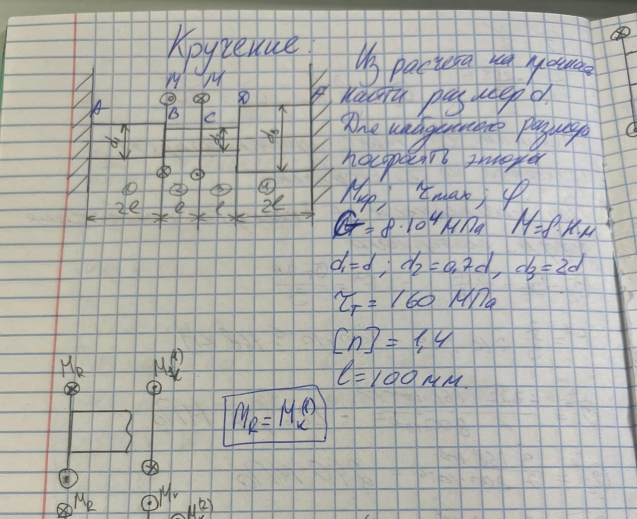 Кручение:
М М
А В С D
d₁ d₃
① ② ③ ④
2l l l 2l
Из расчета на
найти размер d.
Для найденного размера
построить эпюры
Мкр; τmax; φ
G = 8·10⁴ МПа М=8·Н·м
d₁=d; d₂=0,7d, d₃=2d
τт = 160 МПа
[n] = 1,4
l = 100 мм.
MR
MR = Mк⁽¹⁾
MR